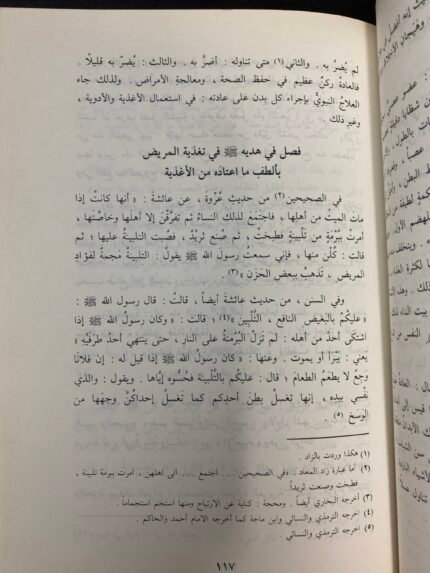 لم يُضرَّ به . والثاني(١) متى تناوله : أضرَّ به . والثالث : يُضرّ به قليلًا .
فالعادةُ ركنٌ عظيم في حفظ الصحة ، ومعالجةِ الأمراض . ولذلك جاء
العلاجُ النبويُّ بإجراء كلِّ بدن على عادته : في استعمال الأغذية والأدوية ،
وغيرِ ذلك
فصل في هديه ﷺ في تغذية المريض
بألطف ما اعتاده من الأغذية
في الصحيحين(٢) من حديث عُرْوةَ ، عن عائشةَ : « أنها كانتْ إذا
ماتَ الميتُ من أهلِها ، فاجتمَعَ لذلك النساءُ ثم تفرَّقْنَ إلا أهلَها وخاصَّتَها ،
أمرتْ ببُرْمةٍ من تَلْبِينةٍ فطبختْ ، ثم صُنع ثريدٌ ، فصُبت التلبينةُ عليها ؛ ثم
قالت : كُلْنَ منها ، فإني سمعتُ رسولَ الله ﷺ يقولُ : التلبينةُ مَجمةٌ لفؤادِ
المريض ، تَذهبُ ببعض الحَزَن »(٣)
وفي السنن ، من حديث عائشةَ أيضاً ، قالتْ : قال رسول الله ﷺ :
« عليكُمْ بالبَغيضِ النافعِ ، التَّلْبين »(٤) ؛ قالت : « وكان رسولُ الله ﷺ إذا
اشتكَى أحدٌ من أهله : لم تَزَلْ البُرمَةُ على النارِ ، حتى ينتهيَ أحدُ طرفَيْهِ »
يَعني : يَبْرَأ أو يموت . وعنها : « كان رسولُ الله ﷺ إذا قيل له : إن فلانًا
وَجِعٌ لا يطعَمُ الطعامَ ؛ قال : عليكُم بالتَّلبينة فحُسُّوه إيَّاها . ويقول : والذي
نفْسي بيدِه ، إنها تغسِلُ بطنَ أحدِكم كما تَغسلُ إحداكنَّ وجهَها من
الوسَخ (٥)
(١) هكذا وردت بالزاد .
(٢) أما عبارة زاد المعاد : «في الصحيحين... اجتمع ... الى اهلهن . امرت ببرمة تلبينة ،
فطبخت وصنعت ثريداً .
(٣) أخرجه البخاري أيضاً . ومجحة : كناية عن الارتياح ومنها استجم استجماماً .
(٤) اخرجه الترمذي والنسائي وابن ماجة كما أخرجه الامام أحمد والحاكم .
(٥) أخرجه الترمذي والنسائي .
١١٧